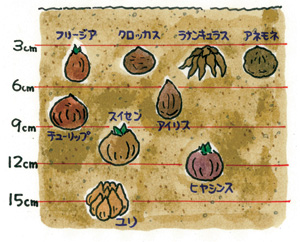 フリージア クロッカス ラナンキュラス アネモネ
3cm
6cm
チューリップ アイリス
9cm
スイセン
12cm
ヒヤシンス
15cm
ユリ